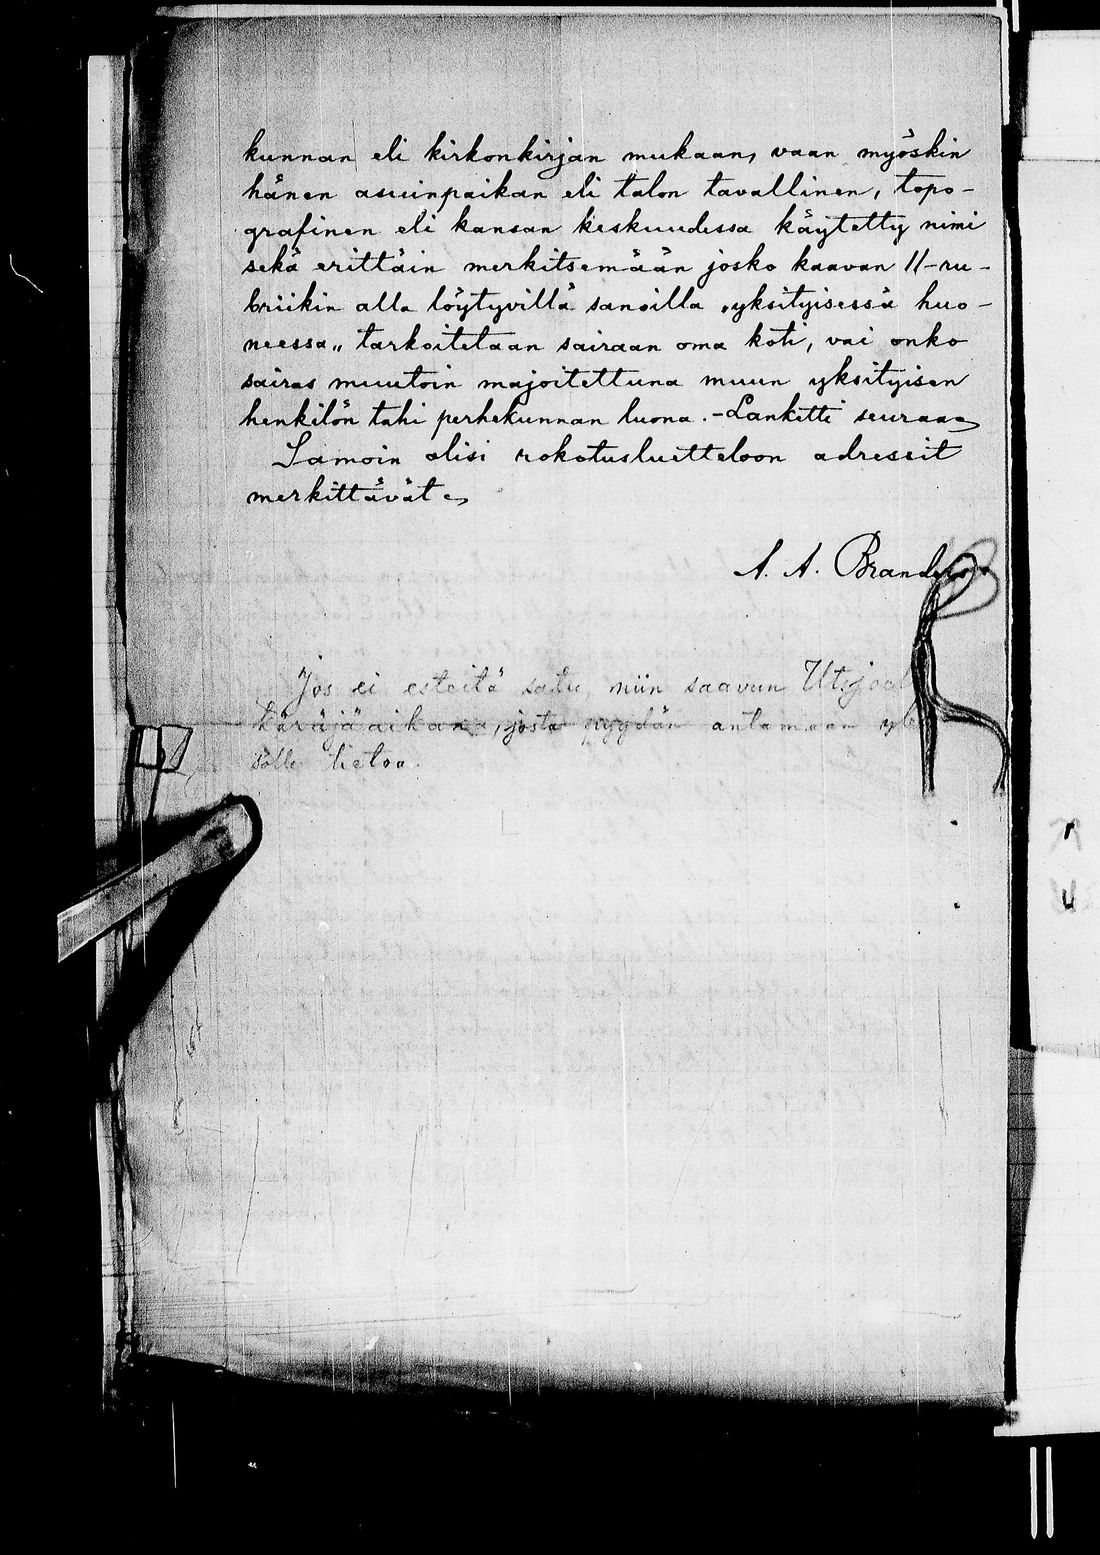 kunnan eli kirkonkirjan mukaan, vaan myöskin
hänen asuinpaikan eli talon tavallinen, topo-
grafinen eli kansan keskuudessa käytetty nimi
sekä erittäin merkitsemään josko kaavan 11-ru-
briikin alla löytyvillä sanoilla „yksityisessä huo-
neessa„ tarkoitetaan sairaan oma koti, vai onko
sairas muutoin majoitettuna muun yksityisen
henkilön tahi perhekunnan luona. - Lanketti seuraa
Samoin olisi rokotusluetteloon adressit
merkittävät.
A. A. Branders
Jos ei esteitä satu, niin saavun Utsjoel
käräjäaikana, josta pyydän antamaan yle
sölle tietoa.